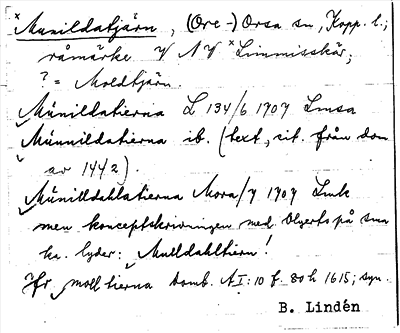 x Munildatjärn, (Ore-) Orsa sn, Kopp. l.;
råmärke N x Limmisskär;
? = Moldtjärn.
Münildatierna L 134/6 1707 Lmsa
Münnildatierna ib. (text, cit. från dom
av 1442).
Münilldahlatierna Mora/7 1707 Lmk
men konceptskrivningen med Olgerts på sma
ka. lyder: Mulldahltiern!
?fr moll tierna Domb. AI:10 f. 80 h 1615; syn.
B. Lindén